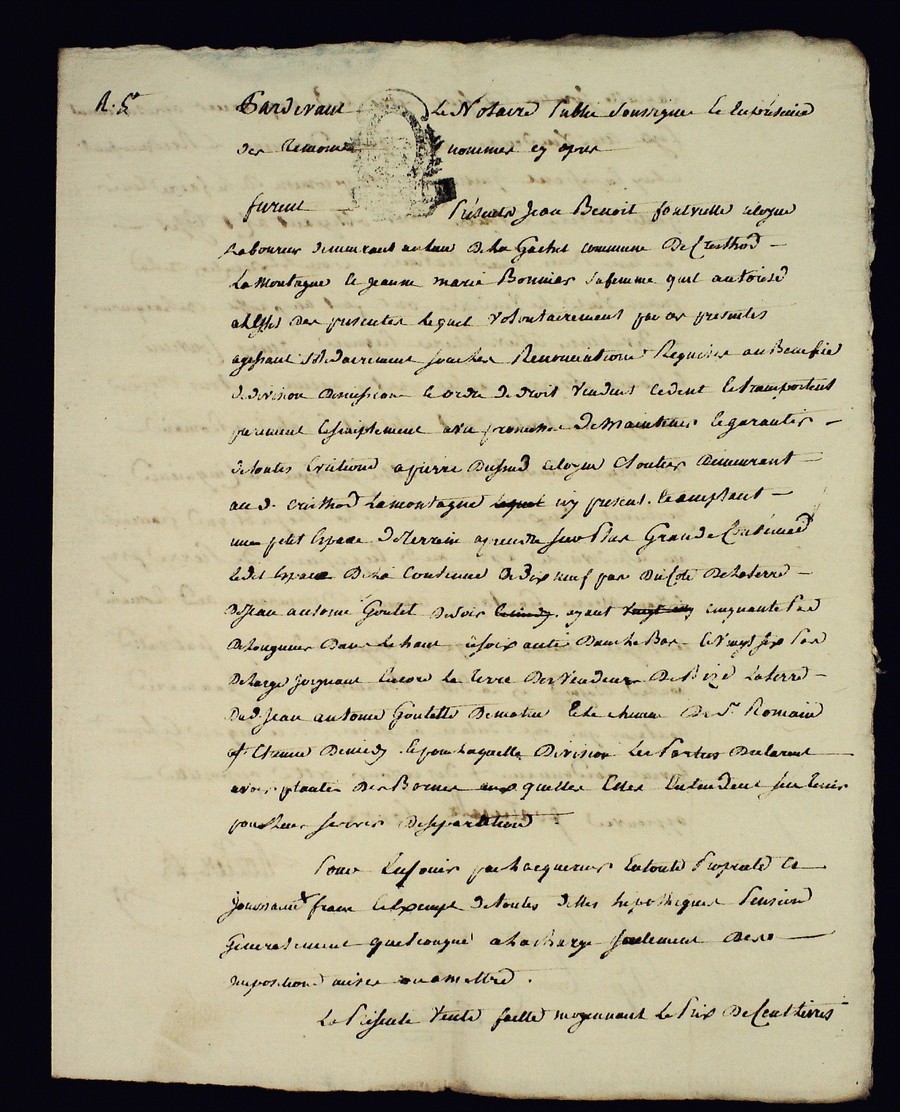 R. 5e
Pardevant Le Notaire Public Soussigné et En présence
des temoins nommés cy apres
furent Présents Jean Benoit fontvielle citoyen
Laboureur demeurant au lieu De La Gachet commune De
La montagne et jeanne marie Bonnier sa femme quil autorise
a l'effet des presentes lequel volontairement par ces presentes
agissant solidairement sous les Renonciations Requises au Benefice
de division Discussion et ordre de droit vendent cedent et transportent
purement et simplement avec promesse De Maintenir et garantir
de toutes Evictions a pierre citoyen Cloutier Demeurant
au d. La montagne lequel icy present et acceptant
un petit Espace de Terrain a prendre sur Plus Grande Contenue
Ledit Espace De la Contenue De dix neuf pas Du Coté De La terre
De Jean antoine Goulet De soir ayant vingt cinq cinquante Pas
De longueur Dans Le haut et soixante Dans Le Bas et vingt six Pas
De large joignant Encore La terre Des Vendeurs De Bize La terre
Dud. Jean antoine Goulette De matin Et Le chemin De St Romain
St Etienne De midy, et pour Laquelle Division Les Parties Declarent
avoir planté Des Bornes auxquelles Elles Entendent sen tenir
pour Leur servir De séparation
Pour En jouir par Lacquereur En toute Proprieté et
jouissance franc et Exempt de toutes dettes hipotheques Pensions
Generalement quelconque a la charge seulement Des
impositions mises ou a mettre.
La Présente Vente faitte moyennant Le Prix De Cent Livres